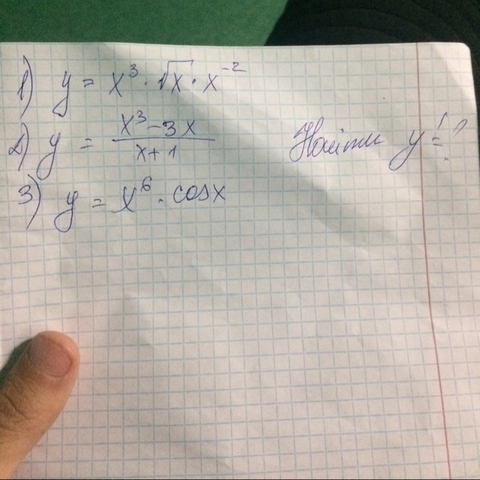 1) y = x³ · √x · x⁻²
2) y = (x³ - 3x)/(x + 1) Найти y' = ?
3) y = x⁶ · cosx